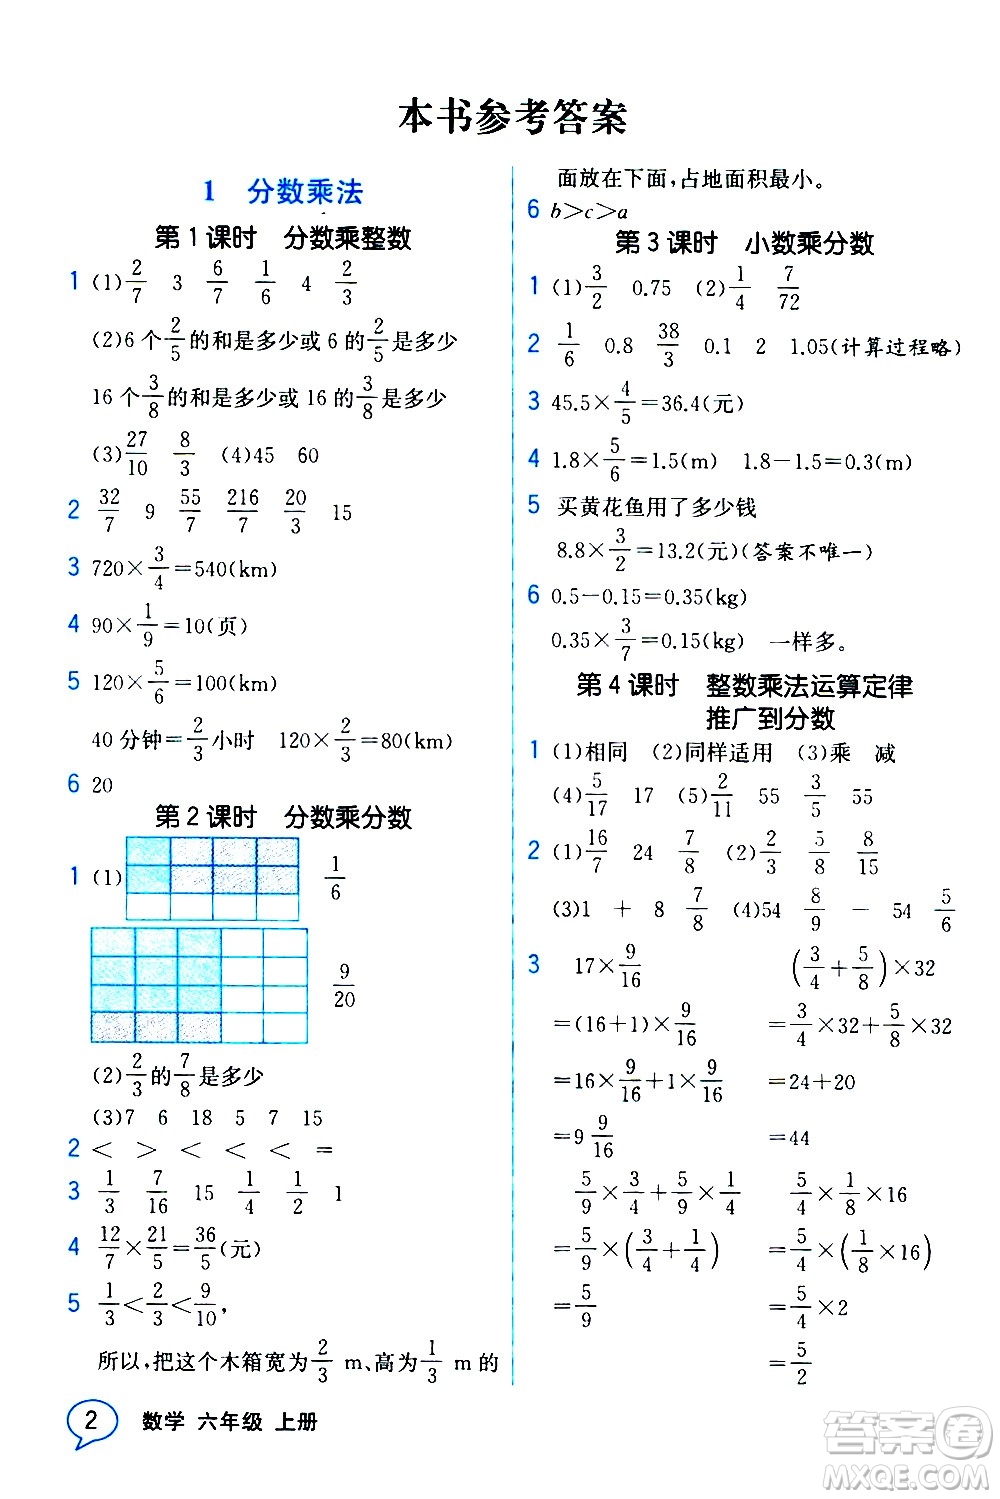 本书参考答案
1 分数乘法
第1课时 分数乘整数
1 (1)2/7 3 6/7 1/6 4 2/3
(2)6个2/5的和是多少或6的2/5是多少
16个3/8的和是多少或16的3/8是多少
(3)27/10 8/3 (4)45 60
2 32/7 9 55/7 216/7 20/3 15
3 720×3/4=540(km)
4 90×1/9=10(页)
5 120×5/6=100(km)
40分钟=2/3小时 120×2/3=80(km)
6 20
第2课时 分数乘分数
1 (1) 1/6
9/20
(2)2/3的7/8是多少
(3)7 6 18 5 7 15
2 < > < < < =
3 1/3 7/16 15 1/4 1/2 1
4 12/7×21/5=36/5(元)
5 1/3<2/3<9/10,
所以,把这个木箱宽为2/3 m、高为1/3 m的
面放在下面,占地面积最小。
6 b>c>a
第3课时 小数乘分数
1 (1)3/2 0.75 (2)1/4 7/72
2 1/6 0.8 38/3 0.1 2 1.05(计算过程略)
3 45.5×4/5=36.4(元)
4 1.8×5/6=1.5(m) 1.8-1.5=0.3(m)
5 买黄花鱼用了多少钱
8.8×3/2=13.2(元)(答案不唯一)
6 0.5-0.15=0.35(kg)
0.35×3/7=0.15(kg) 一样多。
第4课时 整数乘法运算定律
推广到分数
1 (1)相同 (2)同样适用 (3)乘 减
(4)5/17 17 (5)2/11 55 3/5 55
2 (1)16/7 24 7/8 (2)2/3 5/8 8/15
(3)1 + 8 7/8 (4)54 8/9 - 54 5/6
3 17×9/16 (3/4+5/8)×32
=(16+1)×9/16 =3/4×32+5/8×32
=16×9/16+1×9/16 =24+20
=9 9/16 =44
5/9×3/4+5/9×1/4 5/4×1/8×16
=5/9×(3/4+1/4) =5/4×(1/8×16)
=5/9 =5/4×2
=5/2
2 数学 六年级 上册
答案圈
MXQE.COM